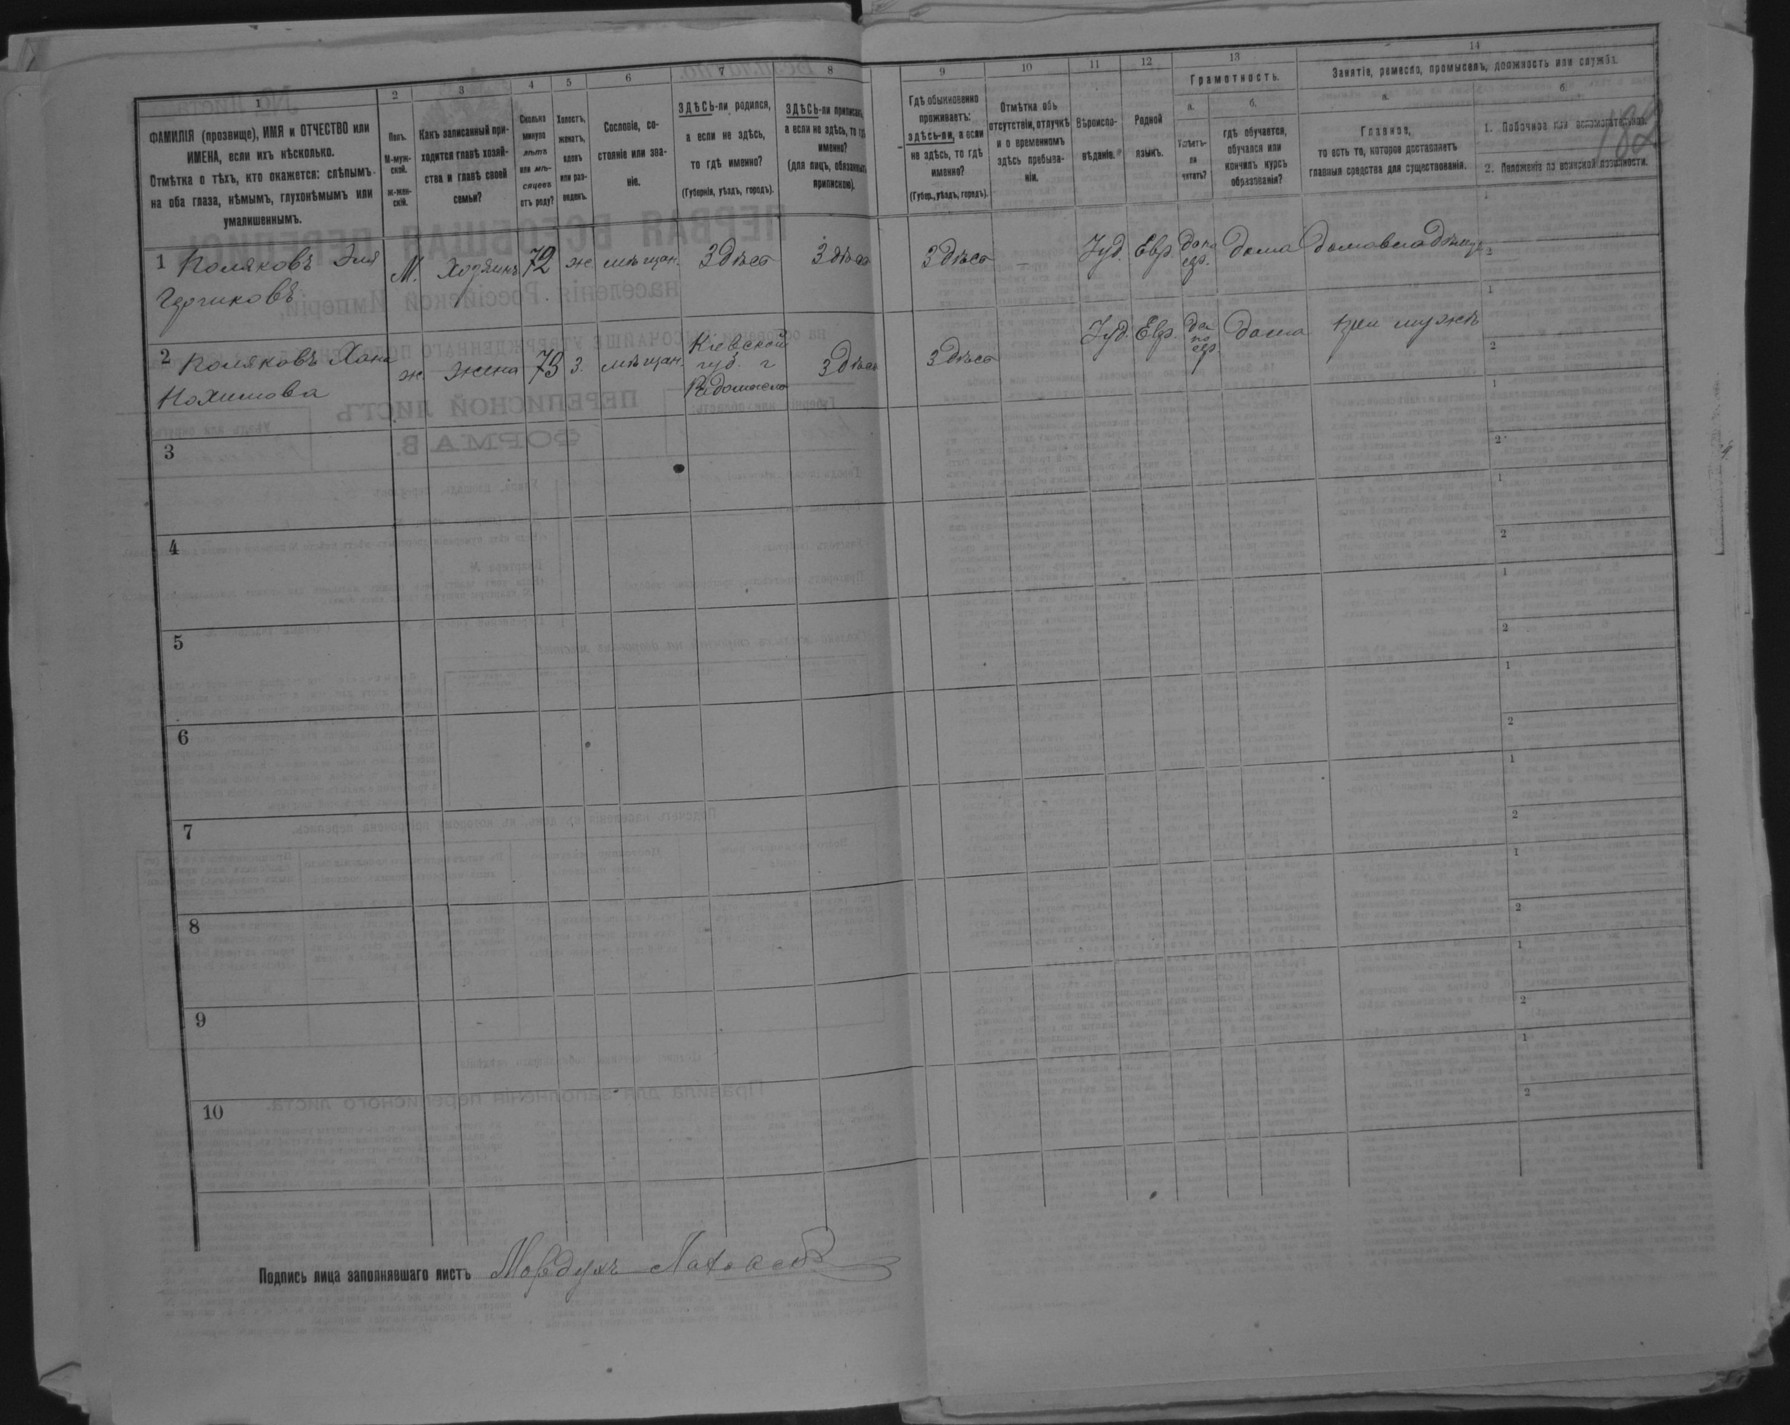 1
2
3
4
5
6
7
8
9
10
11
12
13
14
ФАМИЛІЯ (прозвище), ИМЯ и ОТЧЕСТВО или
ИМЕНА, если ихъ нѣсколько.
Отмѣтка о тѣхъ, кто окажется: слѣпымъ
на оба глаза, нѣмымъ, глухонѣмымъ или
умалишеннымъ.
Полъ.
М-муж-
ской.
Ж-жен-
скій.
Какъ записанный при-
ходится главѣ хозяй-
ства и главѣ своей
семьи?
Сколько
минуло
лѣтъ
или мѣ-
сяцевъ
отъ роду?
Холостъ,
женатъ,
вдовъ
или раз-
веденъ.
Сословіе, со-
стояніе или зва-
ніе.
ЗДѢСЬ-ли родился,
а если не здѣсь,
то гдѣ именно?
(Губернія, уѣздъ, городъ).
ЗДѢСЬ-ли приписанъ,
а если не здѣсь, то гдѣ
именно?
(для лицъ, обязанныхъ
припискою).
Гдѣ обыкновенно
проживаетъ:
здѣсь-ли, а если
не здѣсь, то гдѣ
именно?
(Губер., уѣздъ, городъ).
Отмѣтка объ
отсутствіи, отлучкѣ
и о временномъ
здѣсь пребыва-
ніи.
Вѣроиспо-
вѣданіе.
Родной
языкъ.
Грамотность.
а.
Умѣетъ-
ли
читать?
б.
гдѣ обучается,
обучался или
кончилъ курсъ
образованія?
Занятіе, ремесло, промыселъ, должность или служба.
а.
Главное,
то есть то, которое доставляетъ
главныя средства для существованія.
б.
1. Побочное или вспомогательное.
2. Положеніе по воинской повинности.
182
1 Поляковъ Эля
М. Хозяинъ 72 ж мѣщан. Здѣсь Здѣсь Здѣсь — Іуд. Евр. да по евр. дома
2 Поляковъ Хана
ж жена 73 з. мѣщан. Кіевской губ. г Радомысль Здѣсь Здѣсь Іуд. Евр. да по евр. дома при мужѣ
3
4
5
6
7
8
9
10
Подпись лица заполнявшаго листъ Мордухъ